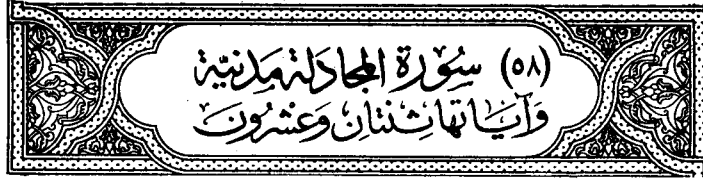 (٥٨) سُوْرَة المجَادَلة مَدنيّة
وَآيَاتها ثِنتَان وَعشرُونَ